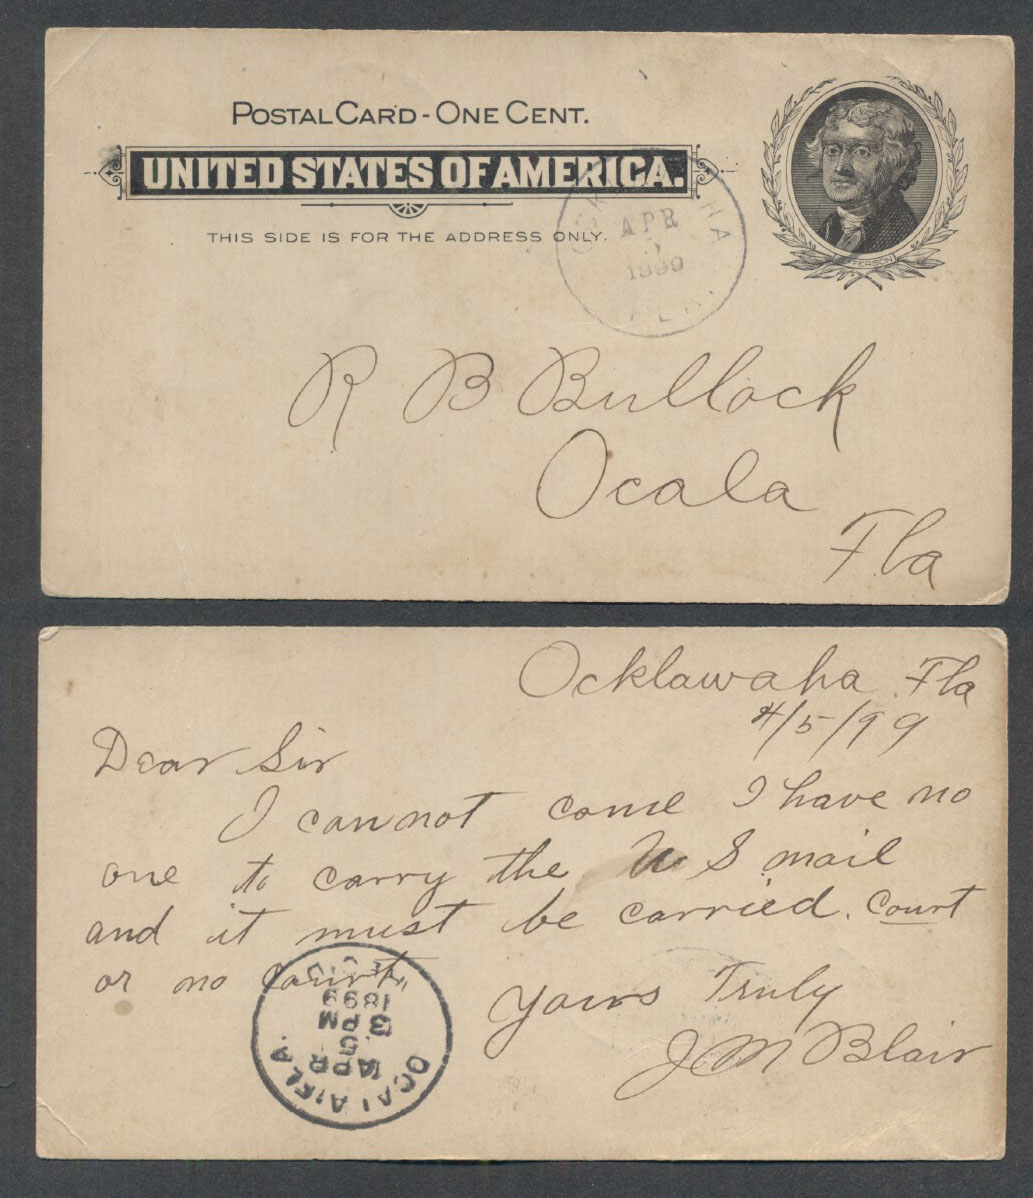 POSTAL CARD - ONE CENT.
UNITED STATES OF AMERICA.
THIS SIDE IS FOR THE ADDRESS ONLY.
JEFFERSON
APR
5
1899
R B Bullock
Ocala
Fla
Ocklawaha Fla
4/5/99
Dear Sir
I can not come I have no
one to carry the U S mail
and it must be carried. Court
or no Court.
Yours Truly
J M Blair
OCALA, FLA.
APR
5
3 PM
1899
REC'D